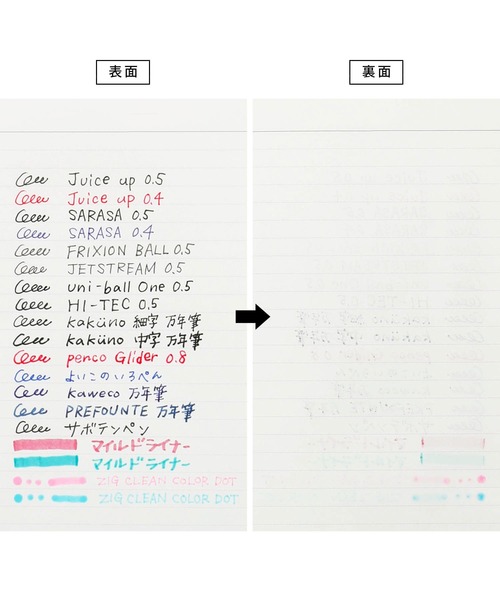 表面
裏面
Juice up 0.5
Juice up 0.4
SARASA 0.5
SARASA 0.4
FRIXION BALL 0.5
JETSTREAM 0.5
uni-ball One 0.5
HI-TEC 0.5
kaküno 細字 万年筆
kaküno 中字 万年筆
penco Glider 0.8
よいこのいろぺん
kaweco 万年筆
PREFOUNTE 万年筆
サボテンペン
マイルドライナー
マイルドライナー
ZIG CLEAN COLOR DOT
ZIG CLEAN COLOR DOT